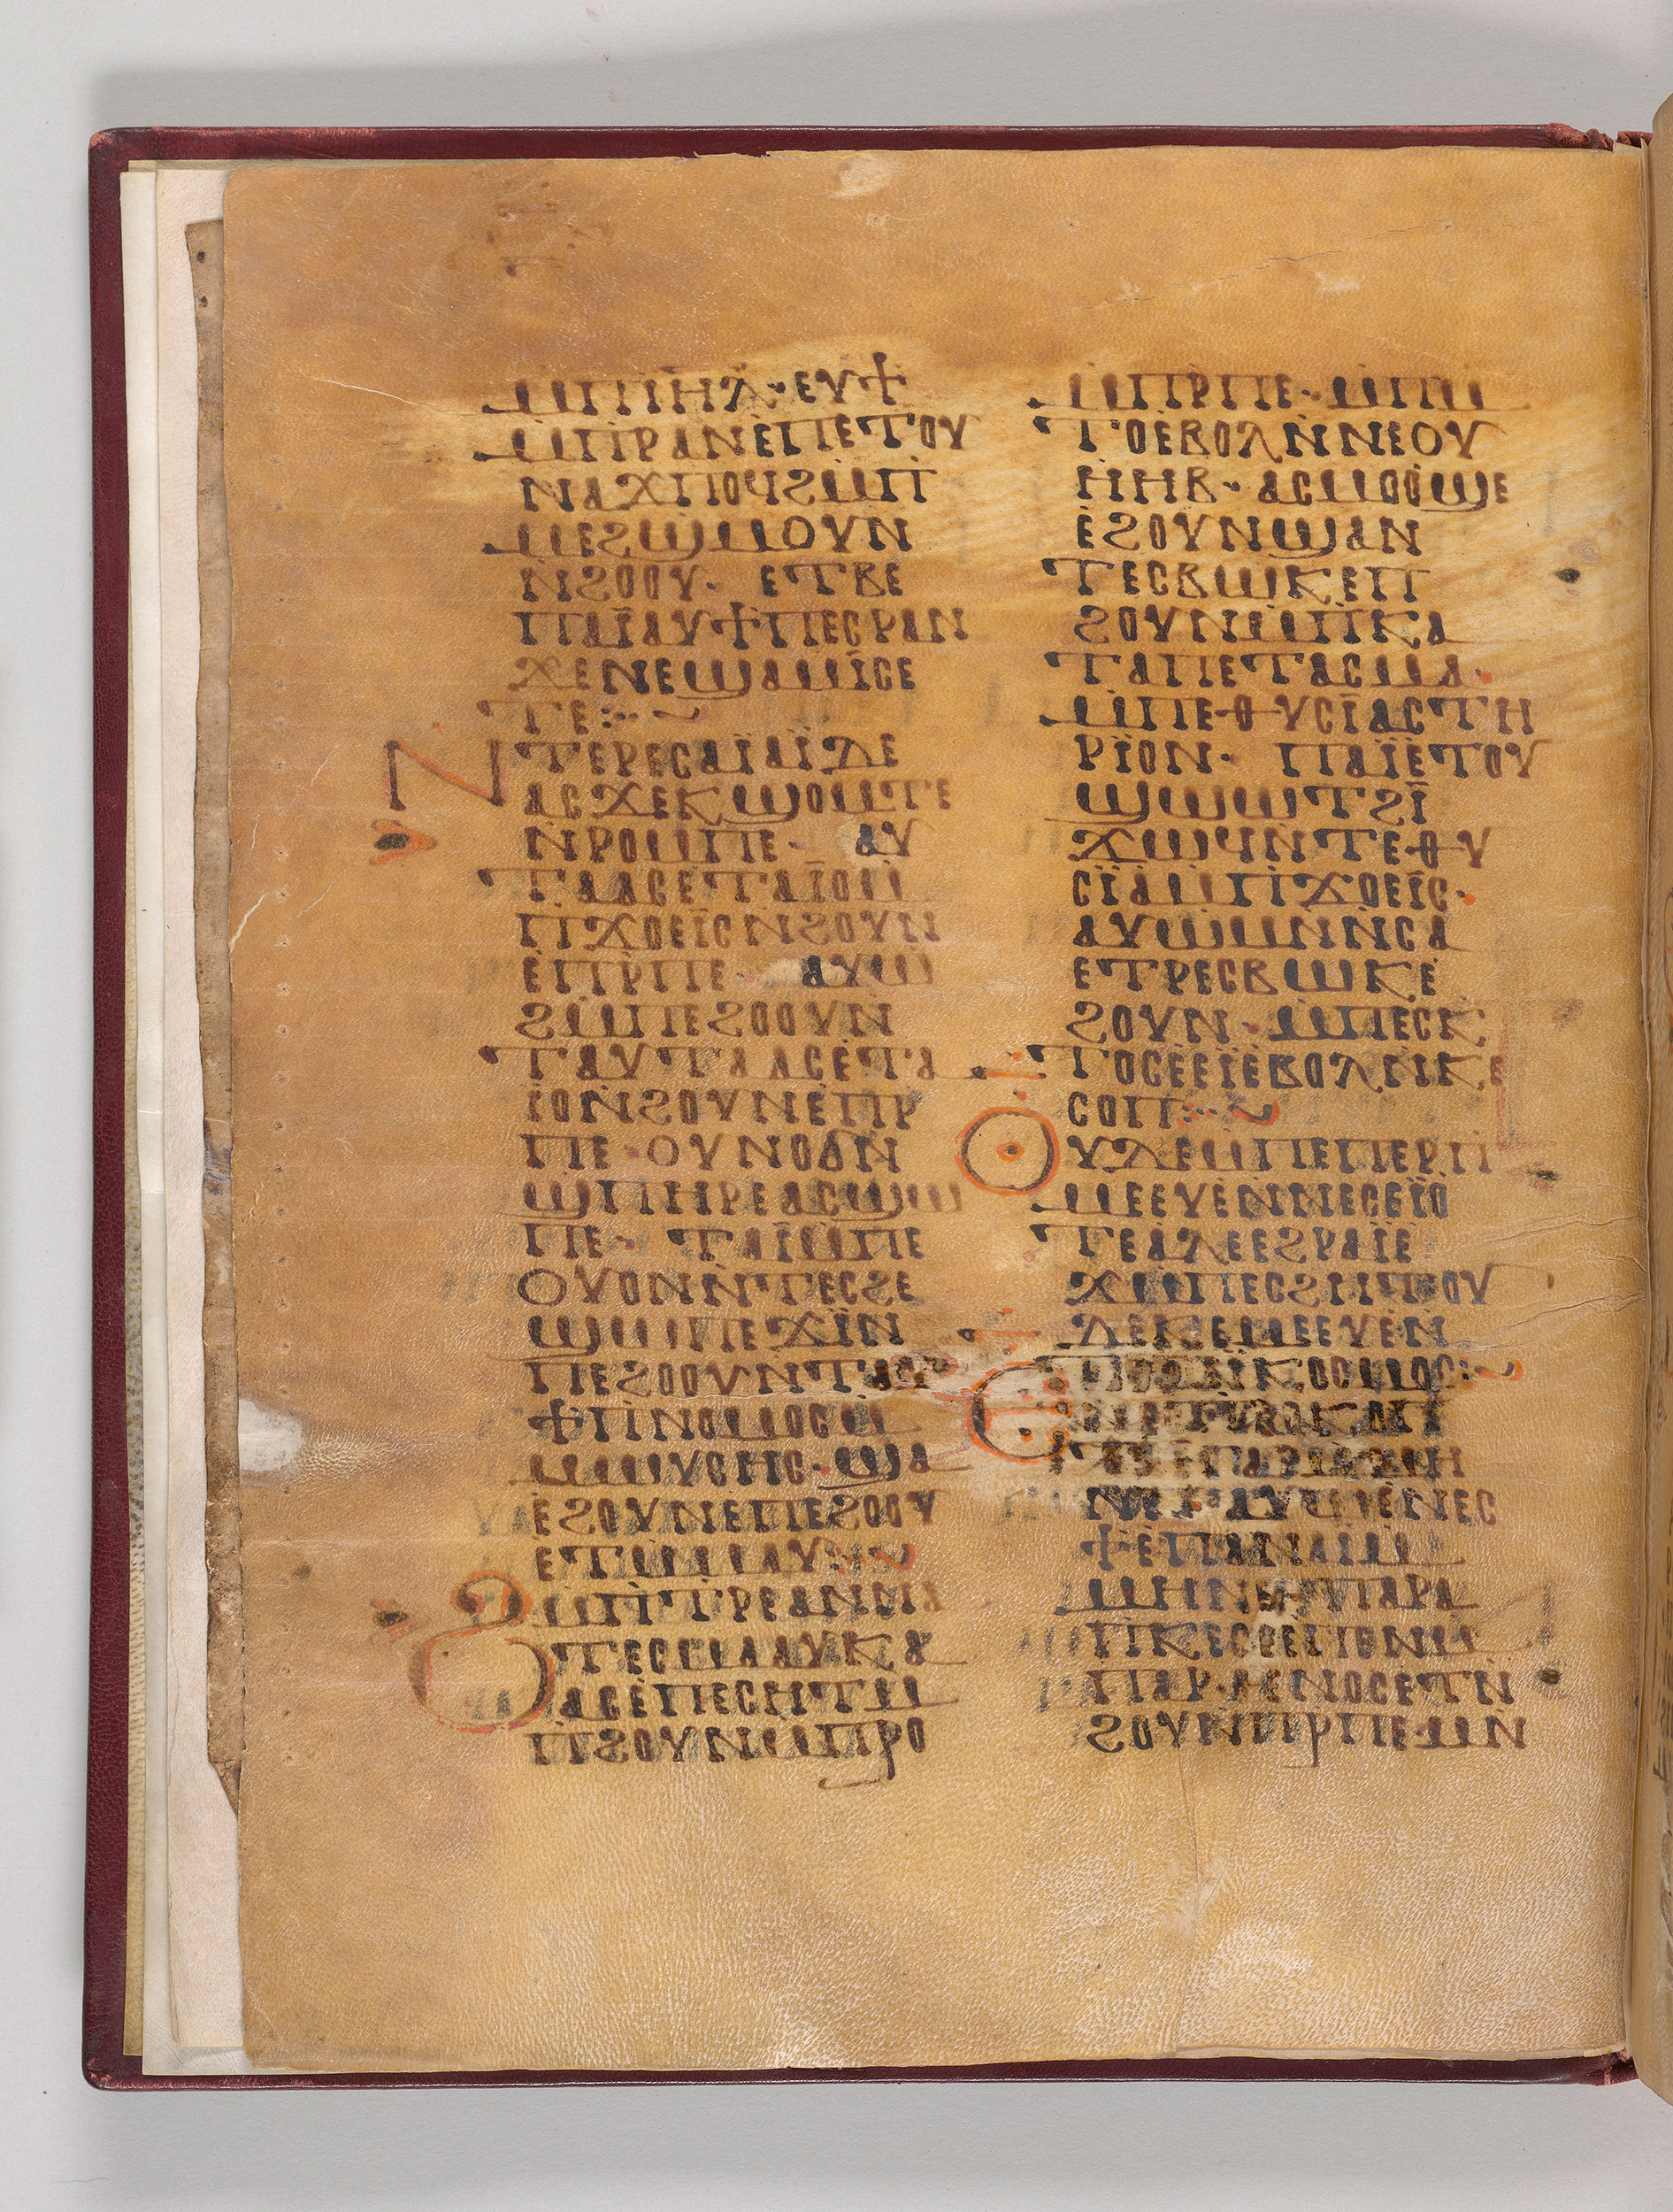 ⲙ̄ⲡⲓⲏⲗ· ⲉⲩϯ
ⲙ̄ⲡⲣⲁⲛⲉⲡⲉⲧⲟⲩ
ⲛⲁϫⲡⲟϥϩⲙ̄ⲡ
ⲙⲉϩϣⲙⲟⲩⲛ
ⲛ̄ϩⲟⲟⲩ· ⲉⲧⲃⲉ
ⲡⲁⲓ̈ⲁⲩϯⲡⲉⲥⲣⲁⲛ
ϫⲉⲛⲉϣⲁⲙⲓ̈ⲥⲉ
ⲧⲉ:·~
ⲛⲧⲉⲣⲉⲥⲁⲓ̈ⲁⲓ̈ⲇⲉ
ⲁⲥϫⲉⲕϣⲟⲙⲧⲉ
ⲛ̄ⲣⲟⲙⲡⲉ· ⲁⲩ
ⲧⲁⲁⲥⲉⲧⲁⲓ̈ⲟⲙ̄
ⲡϫⲟⲉⲓ̈ⲥⲛ̄ϩⲟⲩⲛ
ⲉ̇ⲡⲣ̄ⲡⲉ· ⲁⲩⲱ
ϩⲙ̄ⲡⲉϩⲟⲟⲩⲛ
ⲧⲁⲩⲧⲁⲁⲥⲉ̇ⲧⲁ
ⲓ̈ⲟⲛ̄ϩⲟⲩⲛⲉ̇ⲡⲣ
ⲡⲉ· ⲟⲩⲛⲟϭⲛ̄
ϣⲡⲏⲣⲉⲁⲥϣⲱ
ⲡⲉ· ⲧⲁⲓ̈ⲙ̄ⲡⲉ
ⲟⲩⲟⲛⲛ̄ⲧⲉⲥϩⲉ
ϣⲱⲡⲉϫⲓ̈ⲛ
ⲡⲉϩⲟⲟⲩⲛⲧⲁⲩ
ϯⲡⲛⲟⲙⲟⲥⲙ̄
ⲙⲱⲩⲥⲏⲥ· ϣⲁ
ⲉ̇ϩⲟⲩⲛⲉⲡⲉϩⲟⲟⲩ
ⲉⲧⲙ̄ⲙⲁⲩ:·~
ϩⲙ̄ⲡⲧⲣⲉⲁⲛⲛⲁ
ⲧⲉⲥⲙⲁⲁⲩⲕⲁ
ⲁⲥⲉ̇ⲡⲉⲥⲏⲧⲙ̄
ⲡϩⲟⲩⲛⲙ̄ⲡⲣⲟ
ⲙ̄ⲡⲣⲡⲉ· ⲙ̄ⲡⲙ̄
ⲧⲟⲉ̇ⲃⲟⲗⲛ̄ⲛⲉⲟⲩ
ⲏ̇ⲏⲃ· ⲁⲥⲙⲟⲟϣⲉ
ⲉ̇ϩⲟⲩⲛϣⲁⲛ
ⲧⲉⲥⲃⲱⲕⲉⲡ
ϩⲟⲩⲛⲙ̄ⲡⲕⲁ
ⲧⲁⲡⲉⲧⲁⲥⲙⲁ·
ⲙ̄ⲡⲉⲑⲩⲥⲓ̈ⲁⲥⲧⲏ
ⲣⲓ̈ⲟⲛ· ⲡⲁⲓ̈ⲉ̇ⲧⲟⲩ
ϣⲱⲱⲧϩⲓ̈
ϫⲱϥⲛ̄ⲧⲉⲑⲩ
ⲥⲓ̈ⲁⲙ̄ⲡϫⲟⲉⲓ̈ⲥ·
ⲁⲩⲱⲙⲛ̄ⲛ̄ⲥⲁ
ⲉⲧⲣⲉⲥⲃⲱⲕⲉ̇
ϩⲟⲩⲛ· ⲙ̄ⲡⲉⲥⲕ
ⲧⲟⲥⲉ̇ⲉⲓ̈ⲉ̇ⲃⲟⲗⲛ̄ⲕⲉ
ⲥⲟⲡ:·~
ⲟⲩⲇⲉⲙ̄ⲡⲉⲡⲉⲣⲡ
ⲙⲉⲉⲩⲉ̇ⲛ̄ⲛⲉⲥⲉⲓ̈ⲟ
ⲧⲉⲁ̇ⲗⲉⲉϩⲣⲁⲓ̈ⲉ̇
ϫⲙ̄ⲡⲉⲥϩⲏⲧⲟⲩ
ⲇⲉⲕⲉⲙⲉⲉⲩⲉ̇ⲛ̄
ⲧⲉⲡⲉⲓ̈ⲕⲟⲥⲙⲟⲥ:~
ⲛⲉ· ⲁⲩⲱⲛⲉⲛⲉⲥ
ϯⲉ̇ⲡⲁⲛⲁⲓ̈ⲙ̄
ⲙⲏⲛⲉ· ⲩⲡⲁⲣⲁ
ⲡⲕⲉⲥⲉⲉⲡⲉⲛ̄
ⲡⲁⲣⲑⲉⲛⲟⲥⲉⲧⲛ̄
ϩⲟⲩⲛⲡⲣ̄ⲡⲉ· ⲙⲛ̄